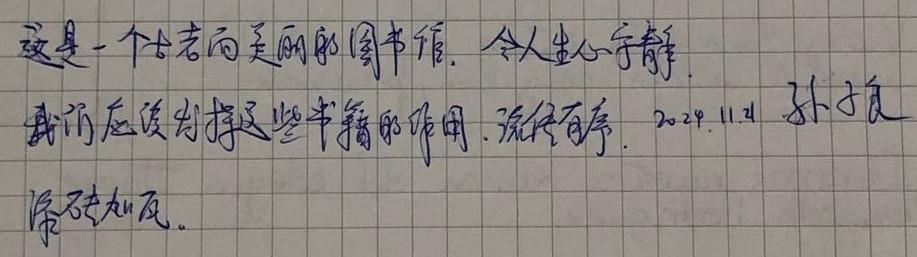 这是一个古老而美丽的图书馆. 令人生心宁静.
我们应该发挥这些书籍的作用.流传有序. 2024.11.21 孙子良
添砖加瓦.